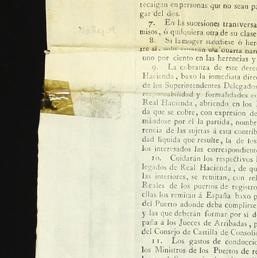 recaigan en personas que no sean pa-
gar del dos.
7. En las sucesiones transversa
misos, ó qualquiera otra de su clase
8. Si la muger sucediese ó her
uno por ciento en las herencias y
9. La cobranza de este dere
Hacienda, baxo la inmediata direc
de los Superintendentes Delegados
responsabilidad y formalidades e
Real Hacienda, abriendo en los
da que se cobre, con expresion de
mándose por él la partida, nombr
rencia de las sujetas á esta contrib
dad líquida que resulte, la de los
los interesados las correspondient
10. Cuidarán los respectivos I
legados de Real Hacienda, de qu
las interiores, se remitan, con rel
Reales de los puertos de registro
ellas los remitan á España baxo p
del Puerto adonde deba cumplirse
y las que deberán formar por sí de
paña á los Jueces de Arribadas, p
del Consejo de Castilla de Consoli
11. Los gastos de conduccio
los Ministros de los Puertos de r